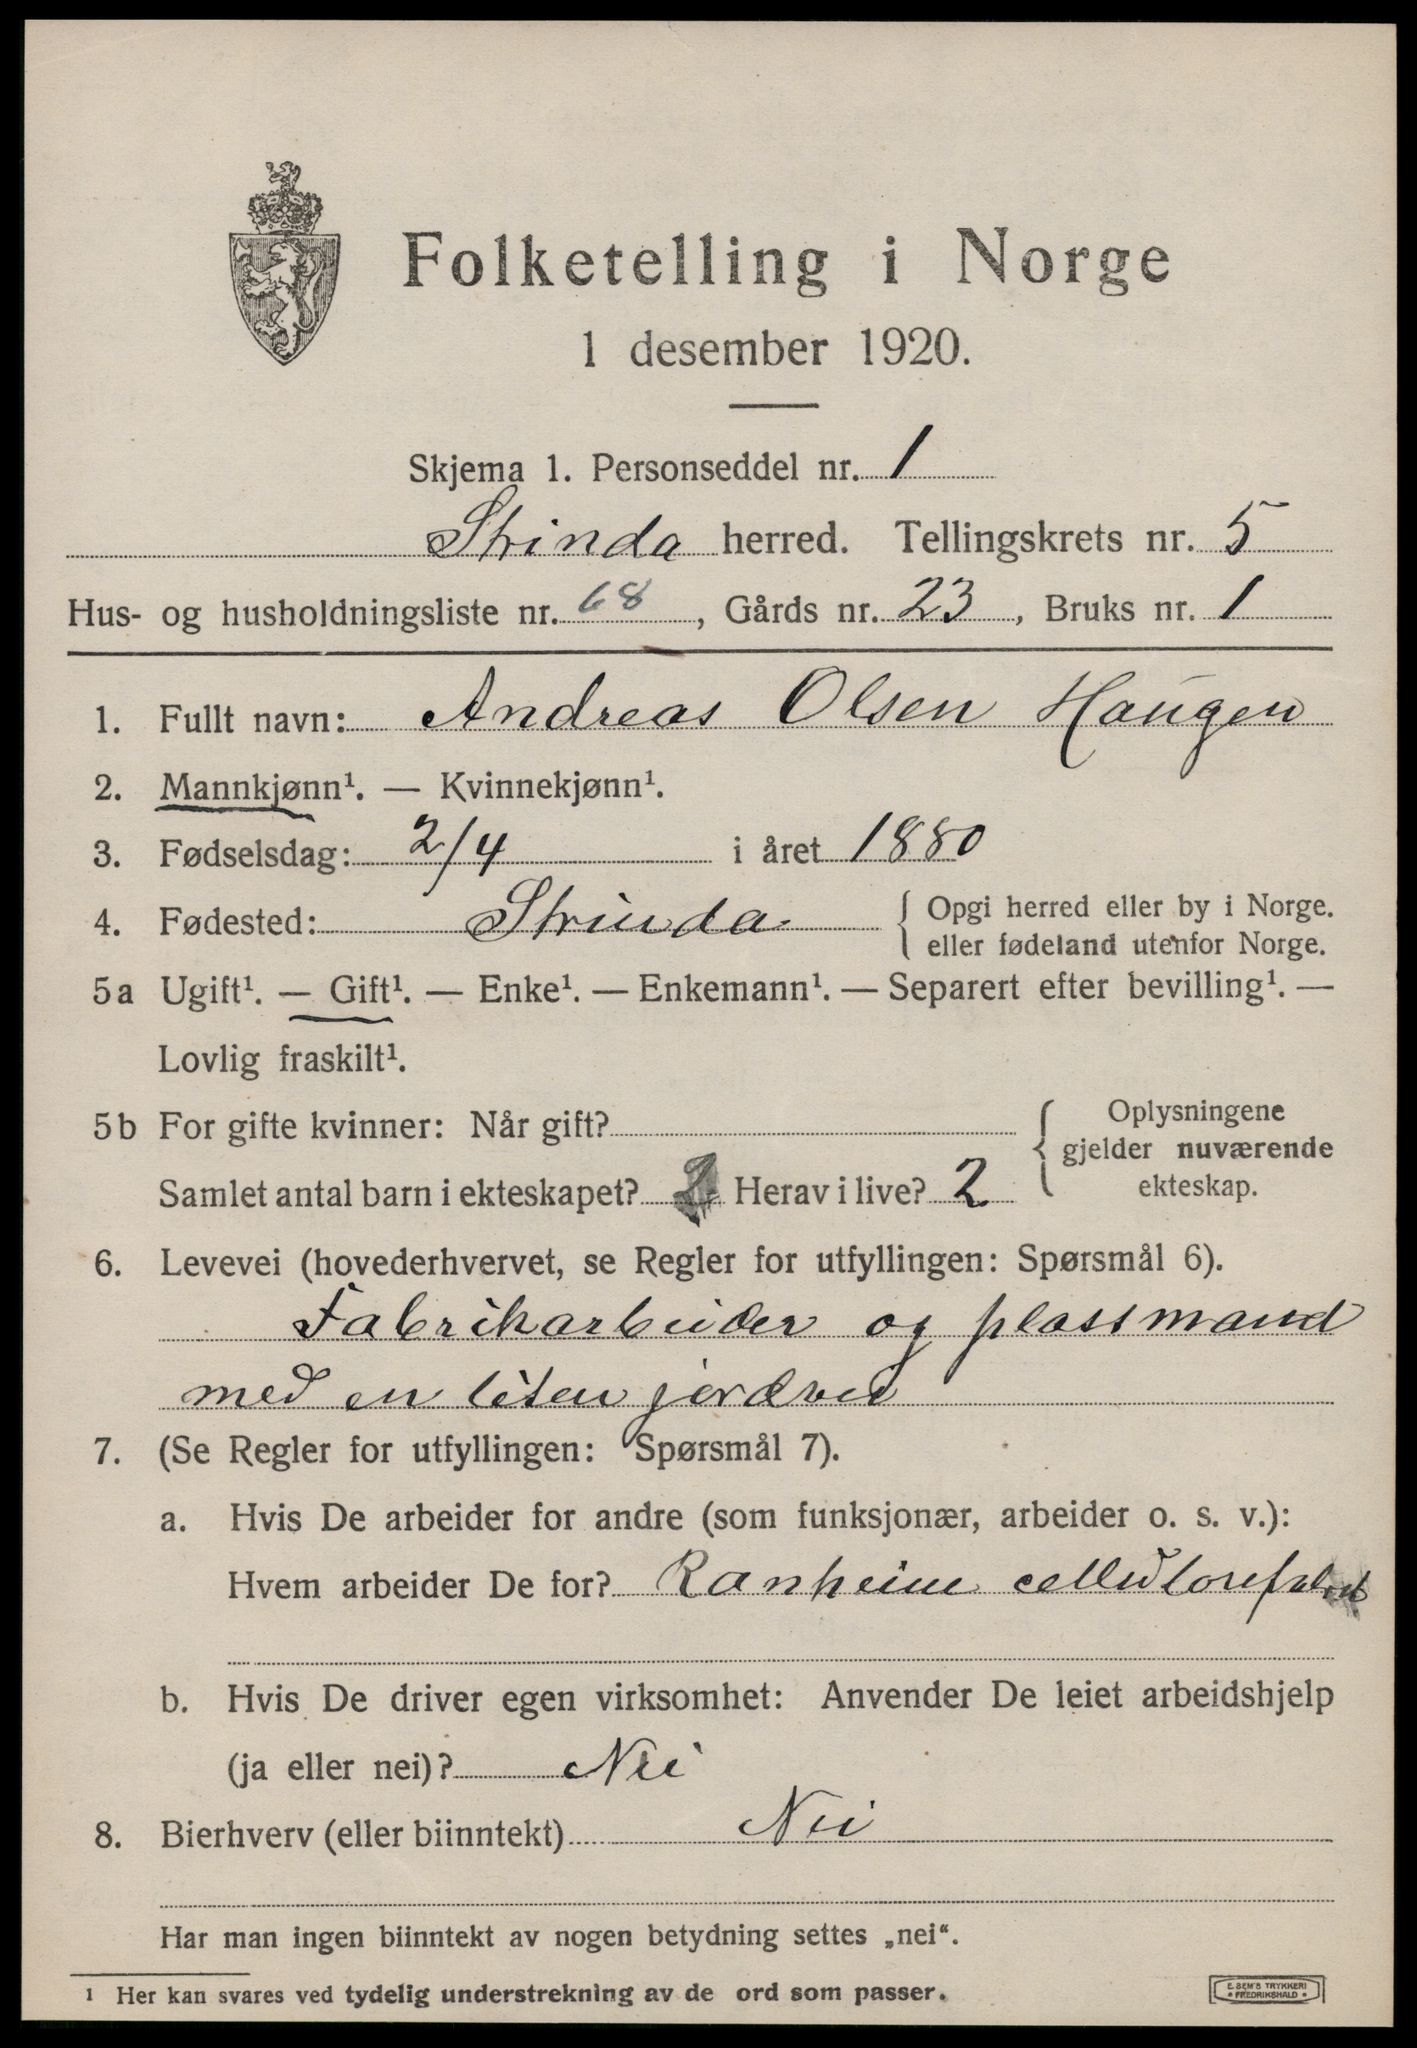 Folketelling i Norge
1 desember 1920.
Skjema 1. Personseddel nr. 1
Strinda herred. Tellingskrets nr. 5
Hus- og husholdningsliste nr. 68, Gårds nr. 23, Bruks nr. 1
1. Fullt navn: Andreas Olsen Haugen
2. Mannkjønn¹. — Kvinnekjønn¹.
3. Fødselsdag: 2/4 i året 1880
4. Fødested: Strinda { Opgi herred eller by i Norge.
eller fødeland utenfor Norge.
5a Ugift¹. — Gift¹. — Enke¹. — Enkemann¹. — Separert efter bevilling¹. —
Lovlig fraskilt¹.
5b For gifte kvinner: Når gift?
Samlet antal barn i ekteskapet? 2 Herav i live? 2
Oplysningene
gjelder nuværende
ekteskap.
6. Levevei (hovederhvervet, se Regler for utfyllingen: Spørsmål 6).
Fabrikarbeider og plassmand
med en liten jordvei
7. (Se Regler for utfyllingen: Spørsmål 7).
a. Hvis De arbeider for andre (som funksjonær, arbeider o. s. v.):
Hvem arbeider De for? Ranheim
b. Hvis De driver egen virksomhet: Anvender De leiet arbeidshjelp
(ja eller nei)? Nei
8. Bierhverv (eller biinntekt) Nei
Har man ingen biinntekt av nogen betydning settes „nei“.
1 Her kan svares ved tydelig understrekning av de ord som passer.
E. SEM'S TRYKKERI
• FREDRIKSHALD •